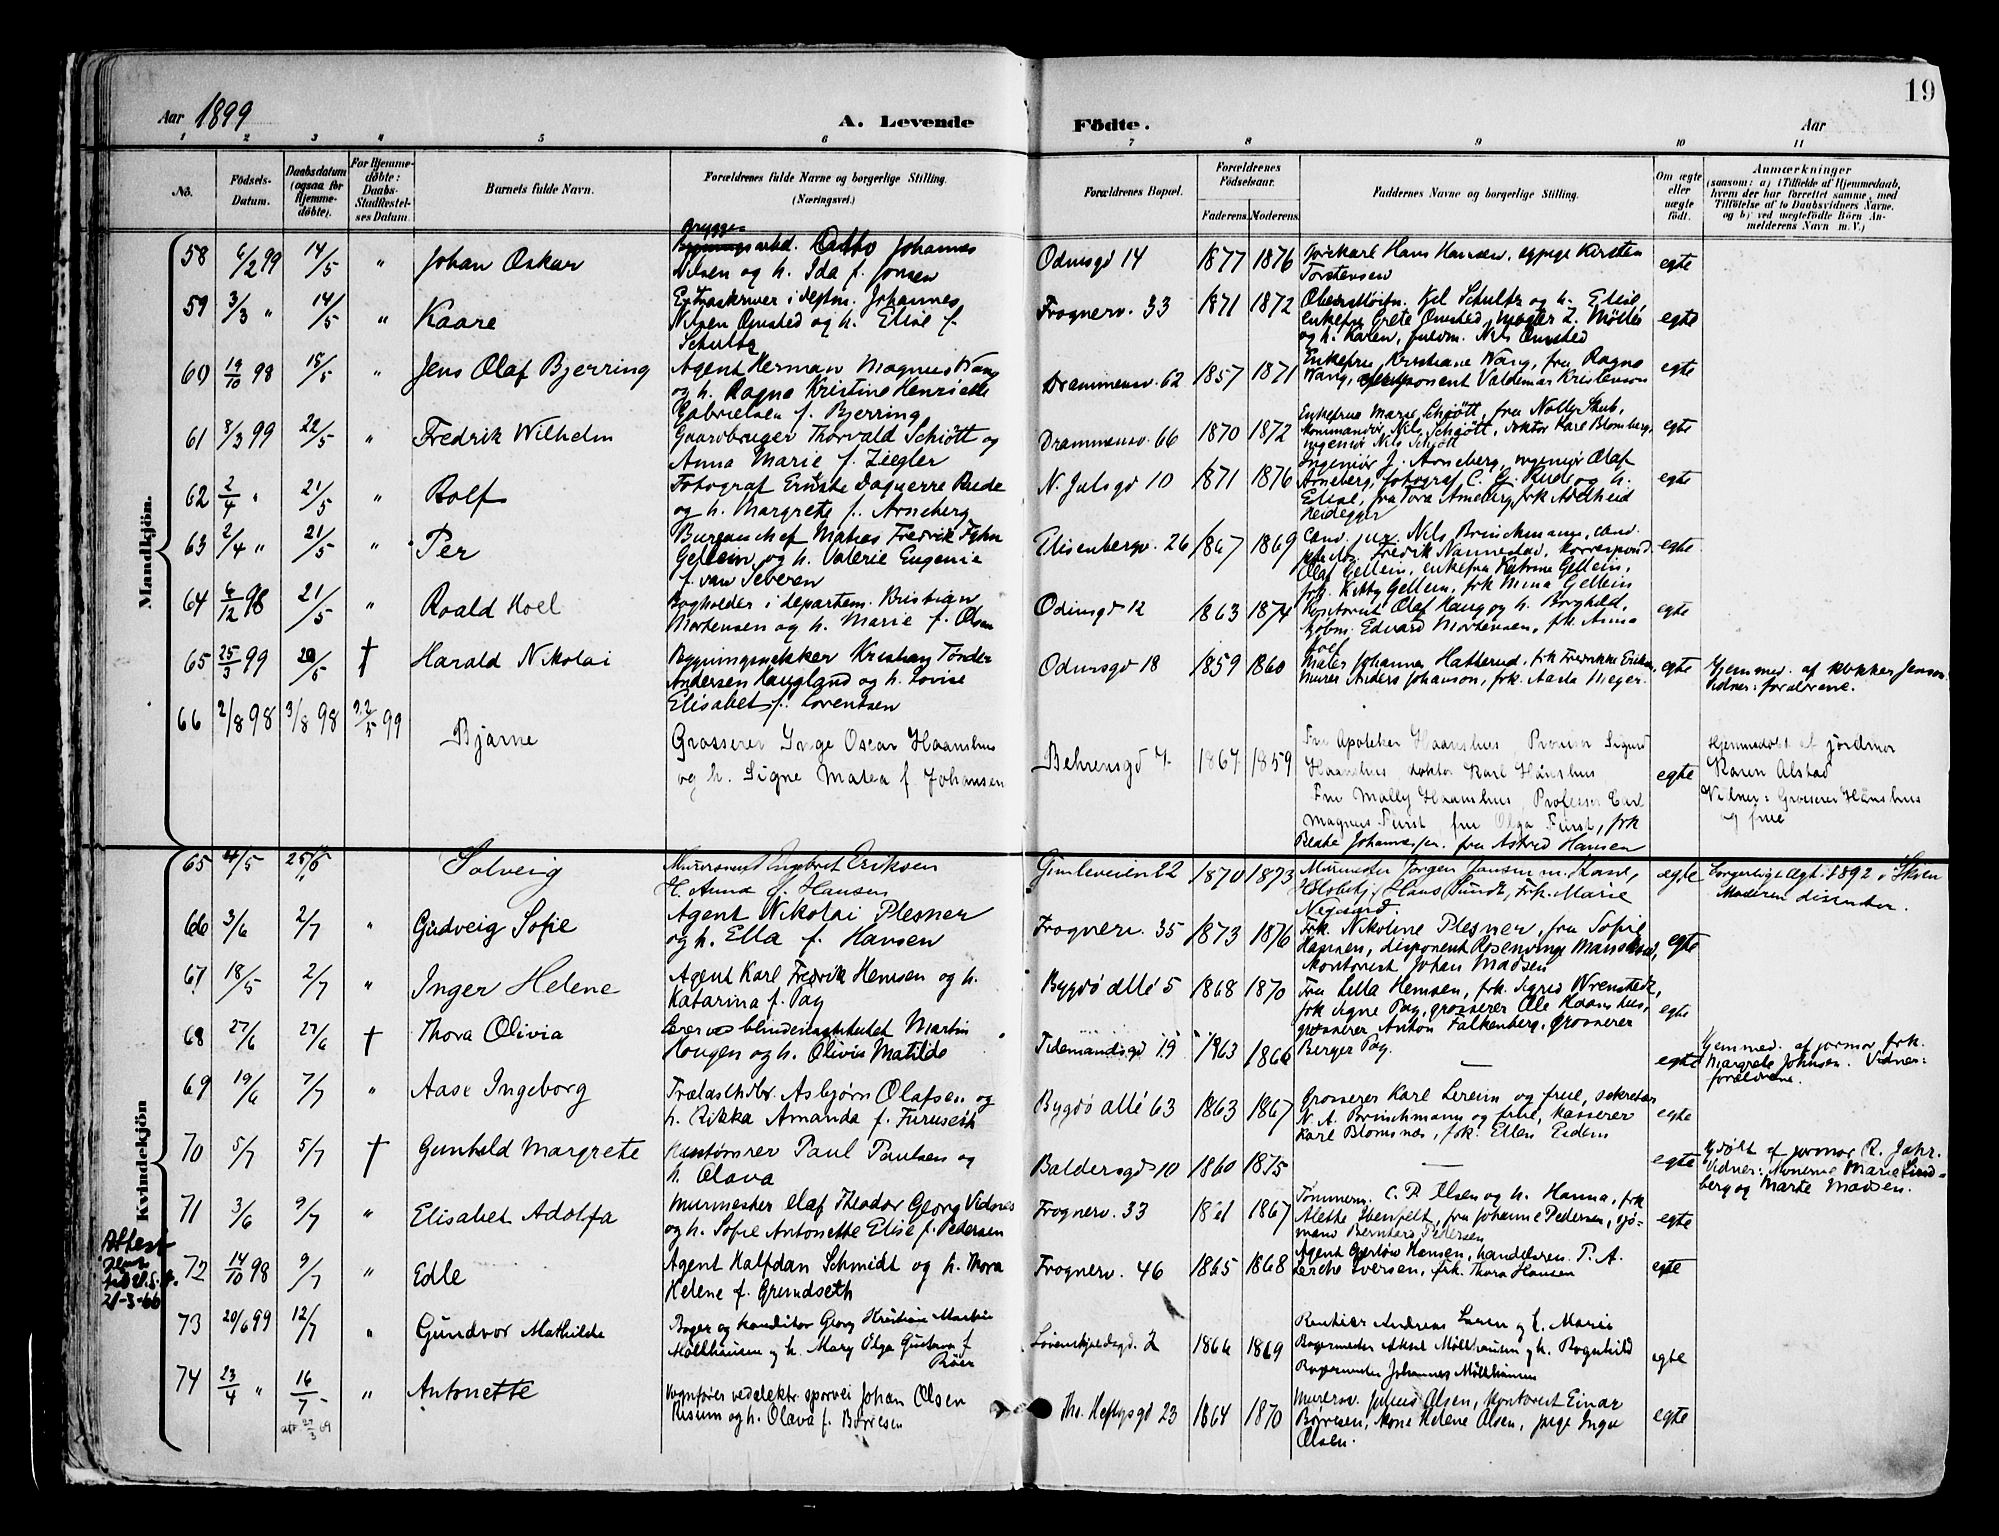 19
Aar 1899
A. Levende Födte.
Aar
1 2 3 4 5 6 7 8 9 10 11
No.
Födsels-Datum.
Daabsdatum (ogsaa for Hjemme-döbte).
For Hjemme-döbte: Daabs-Stadfæstel-ses Datum.
Barnets fulde Navn.
Forældrenes fulde Navne og borgerlige Stilling. (Næringsvei.)
Forældrenes Bopæl.
Forældrenes Födselsaar.
Faderens. Moderens.
Faddernes Navne og borgerlige Stilling.
Om ægte eller uægte födt.
Anmærkninger
(saasom: a) i Tilfælde af Hjemmedaab, hvem der har forrettet samme, med Tilföielse af to Daabsvidners Navne. og b) ved uægtefödte Börn An-melderens Navn m. V.)
Mandkjön.
58 6/2 99 14/5 " Johan Oskar
Brygge arbd. Otto Johannes
Nilsen og h. Ida f. Jonsen
Odinsgd 14 1877 1876
Hans Hansen, pige Kirsten
Torstensen
egte
59 3/3 " 14/5 " Kaare
Extraskriver i deptm. Johannes
Nilsen Omsted og h. Elise f.
Schultz
Frognerv. 33 1871 1872
Schultz og h. Elise,
enkefru Grete Omsted,
og h. Karen, Nils Omsted
egte
60 19/10 98 15/5 " Jens Olaf Bjerring
Agent Herman Magnus Wang
og h. Ragna Kristine Henriette
Gabrielsen f. Bjerring
Drammensv. 62 1857 1871
Enkefru Kristiane Wang, fru Ragna
Wang, Valdemar Kristensen
egte
61 8/3 99 22/5 " Fredrik Wilhelm
Gaardbruger Thorvald Schiött og
Anna Marie f. Ziegler
Drammensv. 66 1870 1872
Enkefrue Marie Schjött, fru Nolly Skub,
kommandör Nils Schjött, doktor Karl Blomberg,
ingeniör Nils Schjött
egte
62 2/4 " 21/5 " Rolf
Fotograf Ernste Daguerre Rude
og h. Margrete f. Arneberg
N. Julsgd 10 1871 1876
Ingeniör J. Arneberg, ingeniör Olaf
Arneberg, fotograf C. G. Rude og h.
Elise, fru Tora Arneberg, frk Adelheid
Heidegger
egte
63 2/4 " 21/5 " Per
Bureauchef Matias Fredrik Fyhn
Gellein og h. Valerie Eugenie
f. van Severen
Elisenbergv. 26 1867 1869
Cand. jur. Nils Brinchmann, cand.
Fredrik Nannestad, korrespond.
Olaf Gellein, enkefru Katrine Gellein,
frk. Kitty Gellein, frk Mina Gellein
egte
64 6/12 98 21/5 " Roald Hoel
Bogholder i departem. Kristian
Mortensen og h. Marie f. Olsen
Odinsgd 12 1863 1874
Kontorist Olaf Haug og h. Borghild,
kjöbm. Edvard Mortensen, frk Anna
Hoel
egte
65 25/3 99 20/5 † Harald Nikolai
Bygningssnekker Kristian Tönder
Andersen Haugland og h. Lovise
Elisabet f. Lorentsen
Odinsgd 18 1859 1860
Maler Johannes Hatterud, frk Fredrikke Eriksen,
Murer Anders Johanson, frk. Aasta Meyer.
egte
Hjemmed. af klokker Jenson
Vidner: forældrene.
66 2/8 98 3/8 98 22/5 99 Bjarne
Grosserer Inge Oscar Haanshus
og h. Signe Matea f. Johansen
Behrensgd 7 1867 1859
Fru Apoteker Haanshus, Provisor Sigurd
Haanshus, doktor Karl Hånshus
Fru Molly Haanshus, Professor Carl
Magnus Fürst, fru Olga Fürst, frk
Beate Johannesen, fru Astrid Hansen
egte
Hjemmedöbt af jordmor
Karen Alstad
Vidner: Grosserer Hånshus
og frue
Kvindekjön
65 4/5 25/6 Solveig
Engebret Eriksen
H. Anna f. Hansen
Gimleveien 22 1870 1873
Murmester Jörgen Jansen m. Kone,
Hans Lundt, Frk. Marie
Negaard
egte
Borgerlig Ægt. 1892 i Skien
Moderen dissenter.
66 3/6 2/7 " Gudveig Sofie
Agent Nikolai Plesner
og h. Ella f. Hansen
Frognerv. 35 1873 1876
Frk. Nikoline Plesner, fru Sofie
Hansen, disponent Rosenvinge
Kontorist Johan Madsen
egte
67 18/5 2/7 " Inger Helene
Agent Karl Fredrik Hemsen og h.
Katarina f. Pay
Bygdö allé 5 1868 1870
Fru Lilla Hemsen, frk. Sigrid Wrenstedt,
frk Signe Pay, grosserer Ole Haanshus,
grosserer Anton Falkenberg, grosserer
Berger Pay.
egte
68 27/6 27/6 † Thora Olivia
Lærer ved blindeinstitutet Martin
Hougen og h. Olivia Matilde
Tidemandsgd 19 1863 1866
egte
Hjemmed. af jormor frk.
Margrete Johnsen. Vidner:
forældrene.
69 19/6 7/7 " Aase Ingeborg
Trælasthdlr. Asbjörn Olafsen og
h. Rikka Amanda f. Furuseth
Bygdö allé 63 1863 1867
Grosserer Karl Lereim og frue, sekretær
N. A. Brinchmann og frue, kasserer
Karl Blomsnæs, frk. Ellen Eidem
egte
70 5/7 5/7 † Gunhild Margrete
Paul Paulsen og
h. Olava
Baldersgd 10 1860 1875
—
egte
Hjdöbt af jormor R. Jahr.
Vidner: Konerne Marie Lind-
berg og Marte Madsen.
71 3/6 9/7 " Elisabet Adolfa
Murmester Olaf Theodor Georg Vidnes
og h. Sofie Antonette Elise f. Pedersen
Frognerv. 33 1861 1867
Tömmerm. C. P. Olsen og h. Hanna, frk
Alette Ibenfelt, fru Johanne Pedersen, sjö-
mand Bernhard Pedersen
egte
Attest
21-3-66
72 14/10 98 9/7 " Edle
Agent Halfdan Schmidt og h. Thora
Helene f. Grundseth
Frognerv. 46 1865 1868
Agent Gerlöw Hansen, handelsren. P. A.
Lerche Iversen, frk. Thora Hansen
egte
73 20/6 99 12/7 " Gundvor Mathilde
Bager og konditor Georg Kristian Martin
Möllhausen og h. Mary Olga Gustava f.
Röer
Lövenskjoldsgd. 2 1866 1869
Rentier Andreas Larsen og h. Marie
Bagermester Aksel Möllhausen og h. Ragnhild
Bagermester Johannes Möllhausen
egte
74 23/4 " 16/7 " Antonette
att 27/3 69
Vognförer ved elektr. sporvei Johan Olsen
Risum og h. Olava f. Borresen
Tho. Heftysgd 23 1864 1870
Murersv. Julius Olsen, Kontorist Einar
Borresen, Kone Helene Olsen, pige Inga
Olsen.
egte